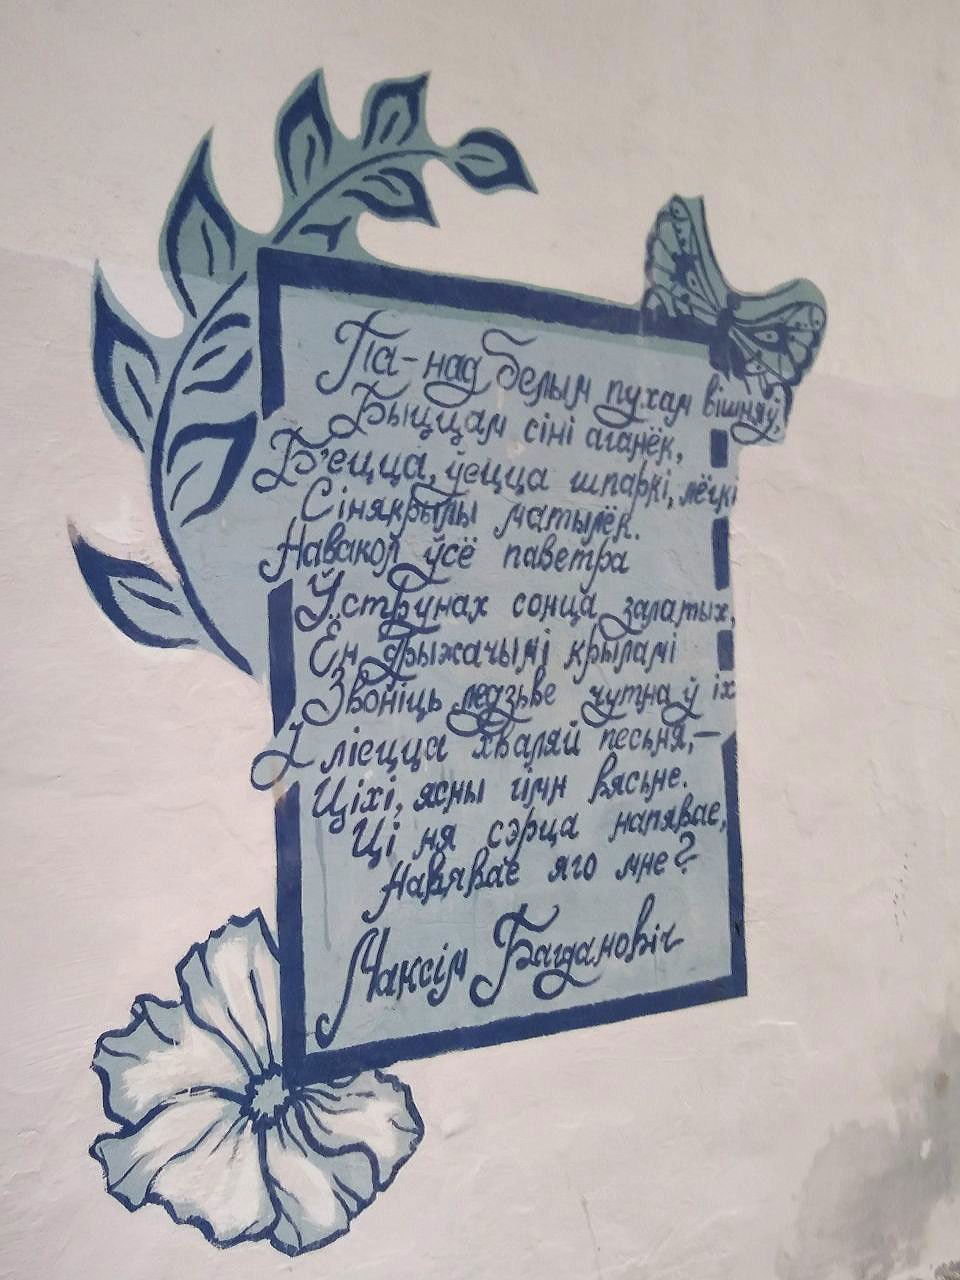 Па-над белым пухам вішняў,
Быццам сіні аганёк,
Б'ецца, ўецца шпаркі, лёгкі
Сінякрылы матылёк.
Навакол ўсё паветра
Ў струнах сонца залатых,
Ён дрыжачымі крыламі
Звоніць ледзьве чутна ў іх
І ліецца хваляй песьня,—
Ціхі, ясны гімн вясьне.
Ці ня сэрца напявае,
Навявае яго мне?
Максім Багдановіч